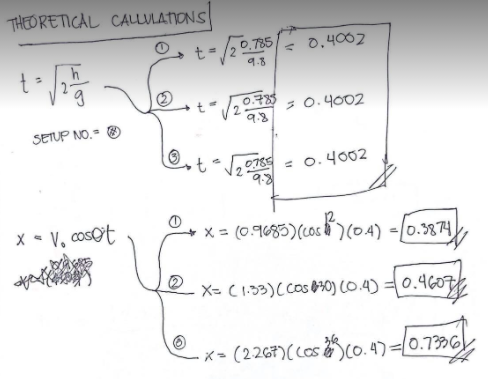 THEORETICAL CALCULATIONS
t = √2 h/g
① t = √2 0.785/9.8 = 0.4002
② t = √2 0.785/9.8 = 0.4002
③ t = √2 0.785/9.8 = 0.4002
SETUP NO. =
x = V₀ cosθt
① x = (0.9685)(cos 12)(0.4) = 0.3874
② x = (1.33)(cos 30)(0.4) = 0.4607
③ x = (2.267)(cos 36)(0.4) = 0.7336